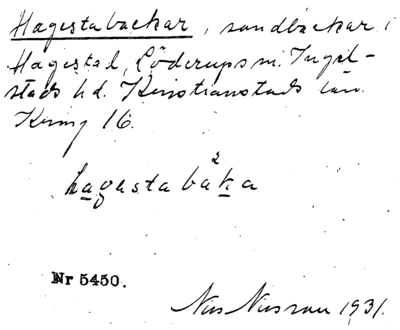 Hagestabackar, sandbackar i
Hagestad, Löderups sn. Ingel-
stads hd. Kristianstads län.
Kring 16.
hagestabaka
2
Nr 5450.
1931.